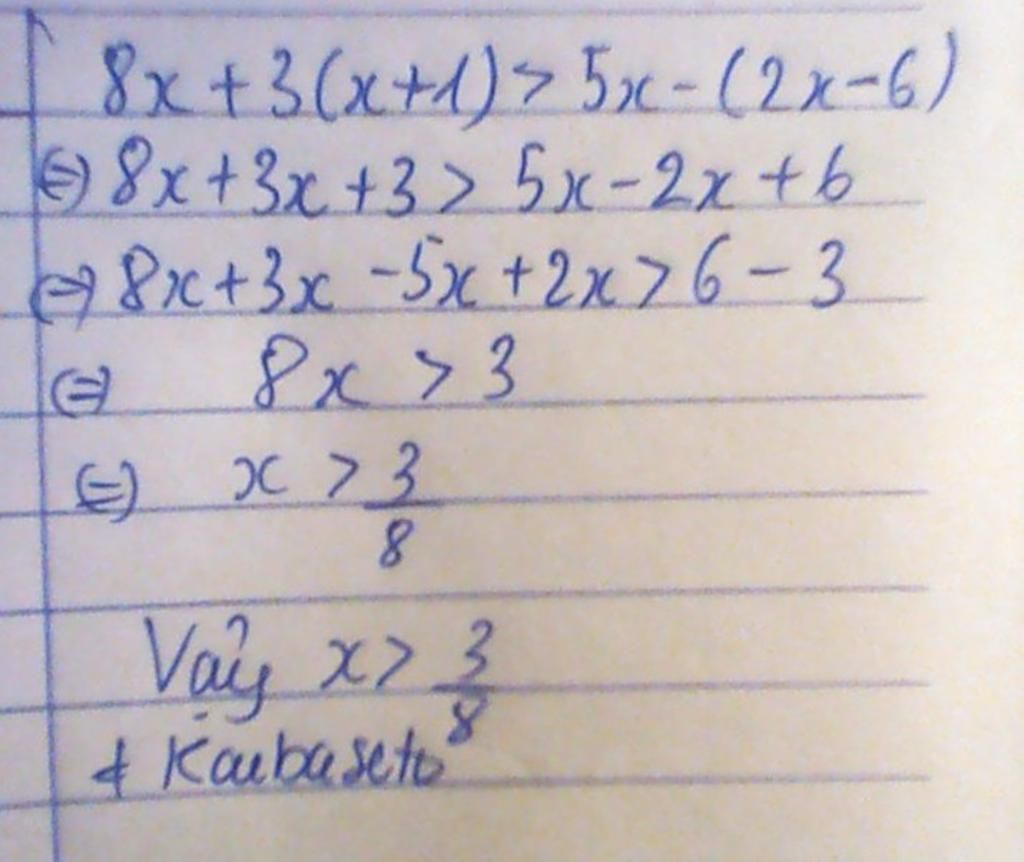 8x + 3(x+1) > 5x - (2x - 6)
⇔ 8x + 3x + 3 > 5x - 2x + 6
⇔ 8x + 3x - 5x + 2x > 6 - 3
⇔ 8x > 3
⇔ x > 3/8
Vậy x > 3/8
+ Kaibaseto